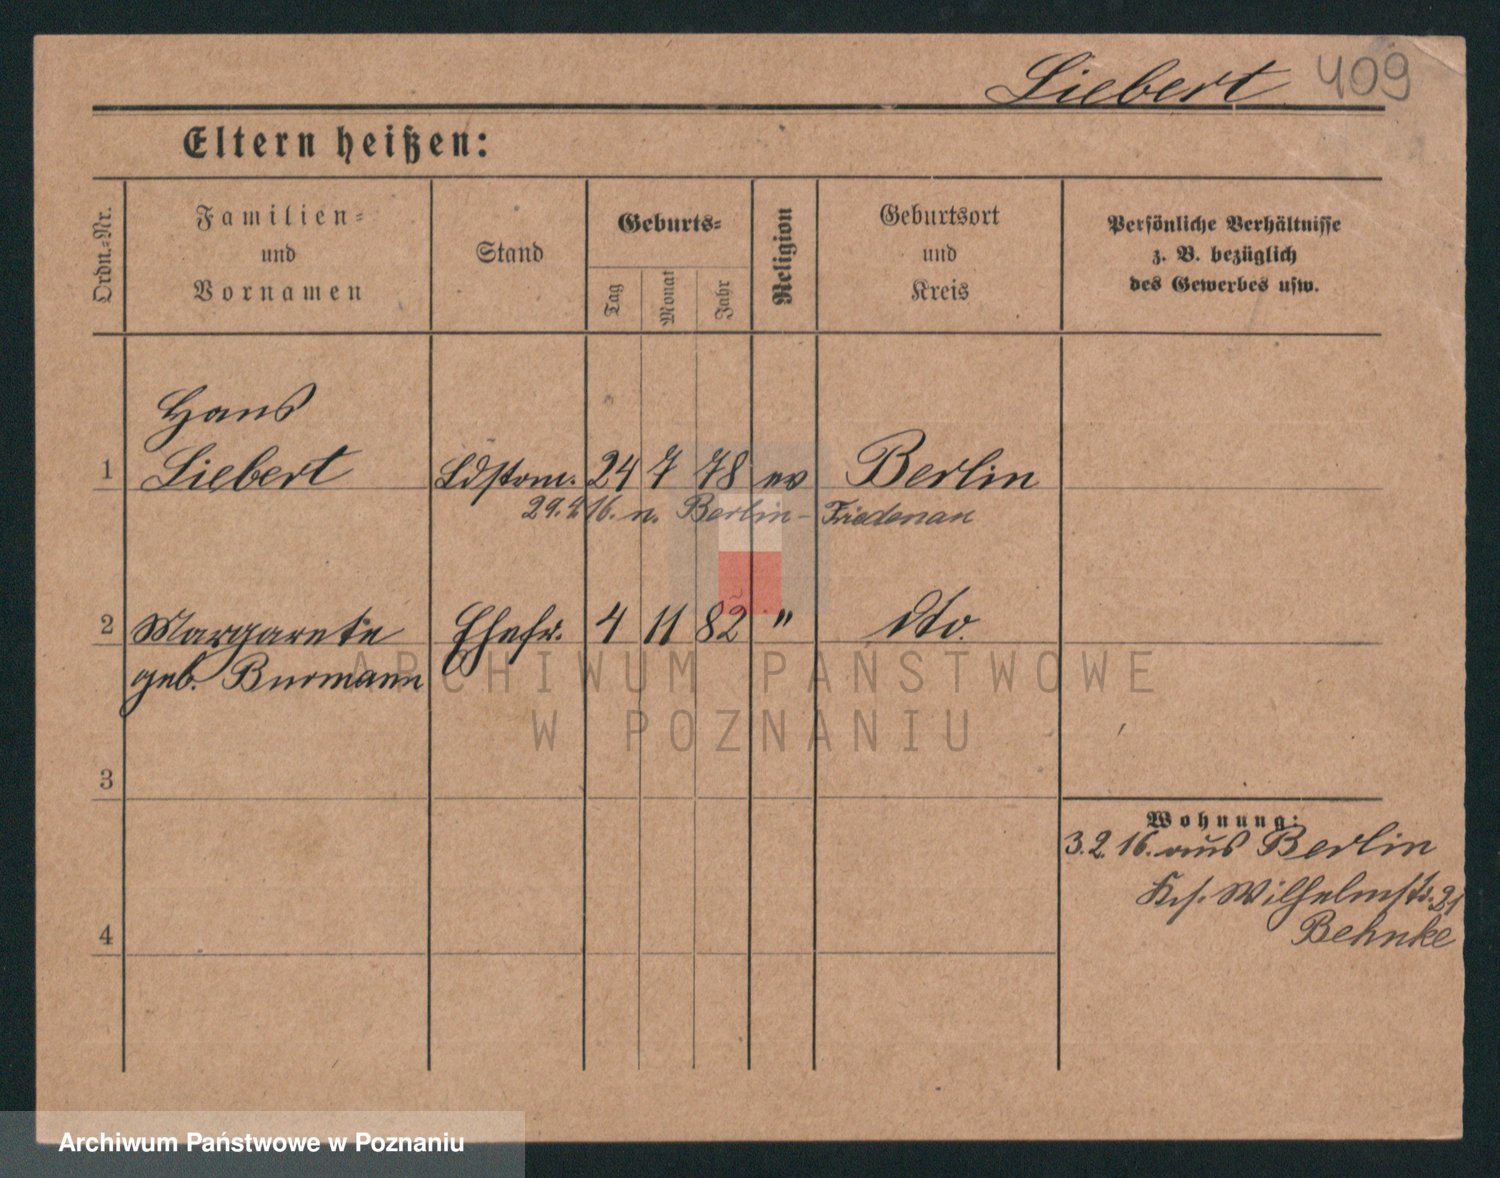 Liebert 409
Eltern heißen:
Ordn.-Nr.
Familien-
und
Vornamen
Stand
Geburts-
Tag
Monat
Jahr
Religion
Geburtsort
und
Kreis
Persönliche Verhältnisse
z. B. bezüglich
des Gewerbes usw.
Hans
1 Liebert Ldstom. 24 7 78 ev Berlin
29. 4. 16. n. Berlin-Friedenau
2 Margarete Ehefr. 4 11 82 " dto.
geb. Burmann
3
Wohnung:
3.2.16. aus Berlin
Wilhelmstr. 21
Behnke
4
ARCHIWUM PAŃSTWOWE
W POZNANIU
Archiwum Państwowe w Poznaniu